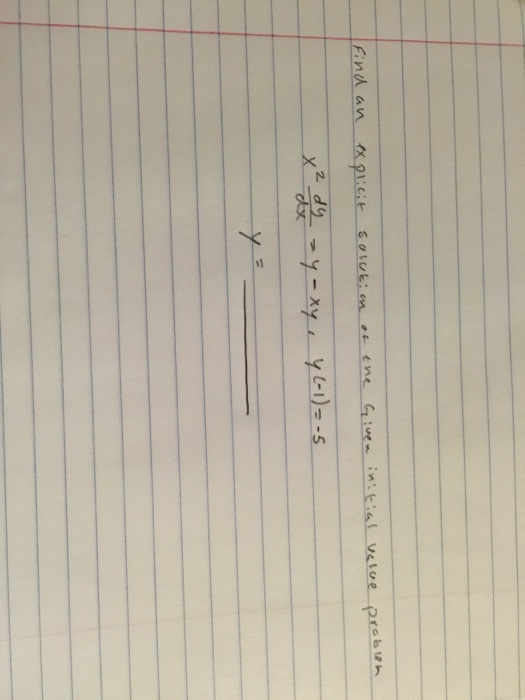 Find an explicit solution of the Given initial value problem
x² dy/dx = y - xy, y(-1) = -5
y = ______